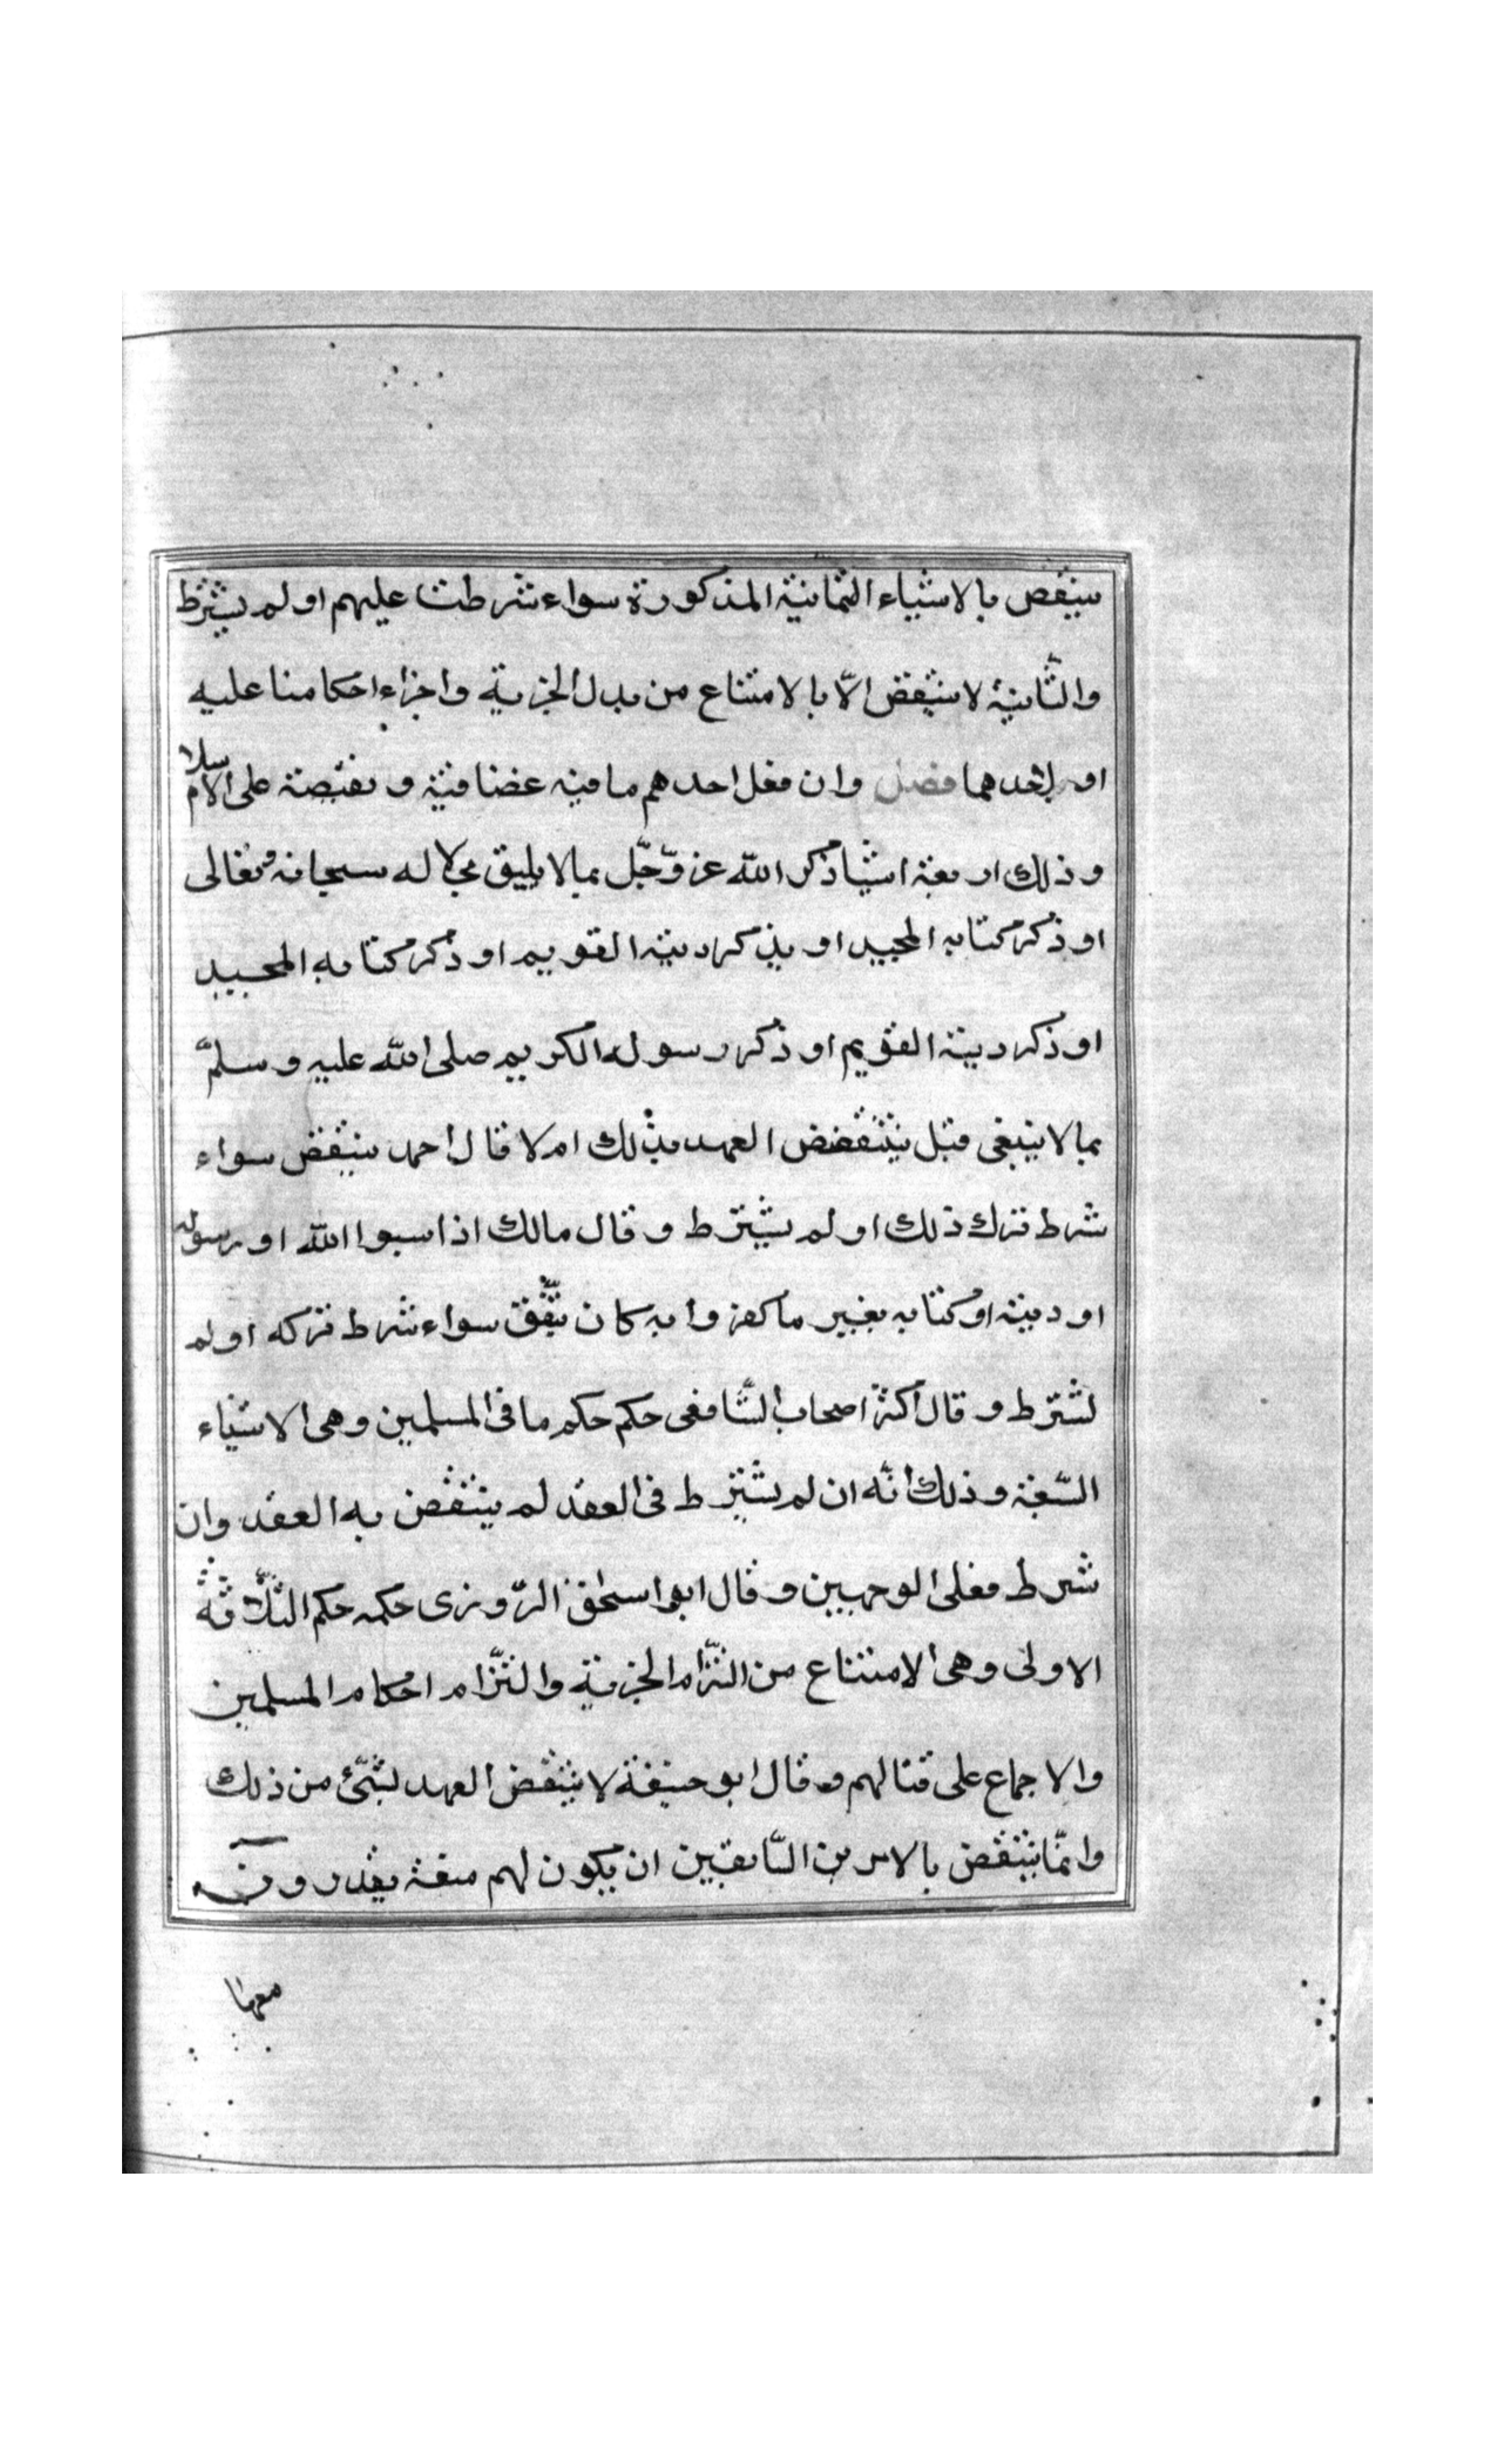 ينتقض بالاشياء الثمانية المذكورة سواء شرطت عليهم او لم يشترط
والثّانية لا ينتقض الّا بالامتناع من بدل الجزية واجزاء احكامنا عليه
او باحدهما فصل وان فعل احدهم ما فيه غضاضة ونقيصة على الاسلام
وذلك اربعة اشيا ذكر اللّه عز وّجّل بما لا يليق بجلاله سبحانه وتعالى
او ذكر كتابه المجيد او يذكر دينه القويم او ذكر كتابه المجيد
او ذكر دينه القويم او ذكر رسوله الكريم صلى اللّه عليه وسلمّ
بما لا ينبغى فهل ينتقض العهد بذلك ام لا قال احمد ينتقض سواء
شرط ترك ذلك او لم يشترط وقال مالك اذا سبوا اللّه او رسوله
او دينه او كتابه بغير ما كفروا به كان نقض سواء شرط تركه او لم
يشترط وقال اكثر اصحاب الشّافعى حكم حكم ما فى المسلمين وهى الاشياء
السّبعة وذلك انّه ان لم يشترط فى العقد لم ينتقض به العقد وان
شرط فعلى الوجهين وقال ابو اسحق المروزى حكمه حكم الثّلاثة
الاولى وهى الامتناع من التزام الجزية والتزام احكام المسلمين
والاجماع على قتالهم وقال ابو حنيفة لا ينتقض العهد بشئ من ذلك
وانّما ينتقض بالامرين السّابقين ان يكون لهم منعة يقدرون
معها